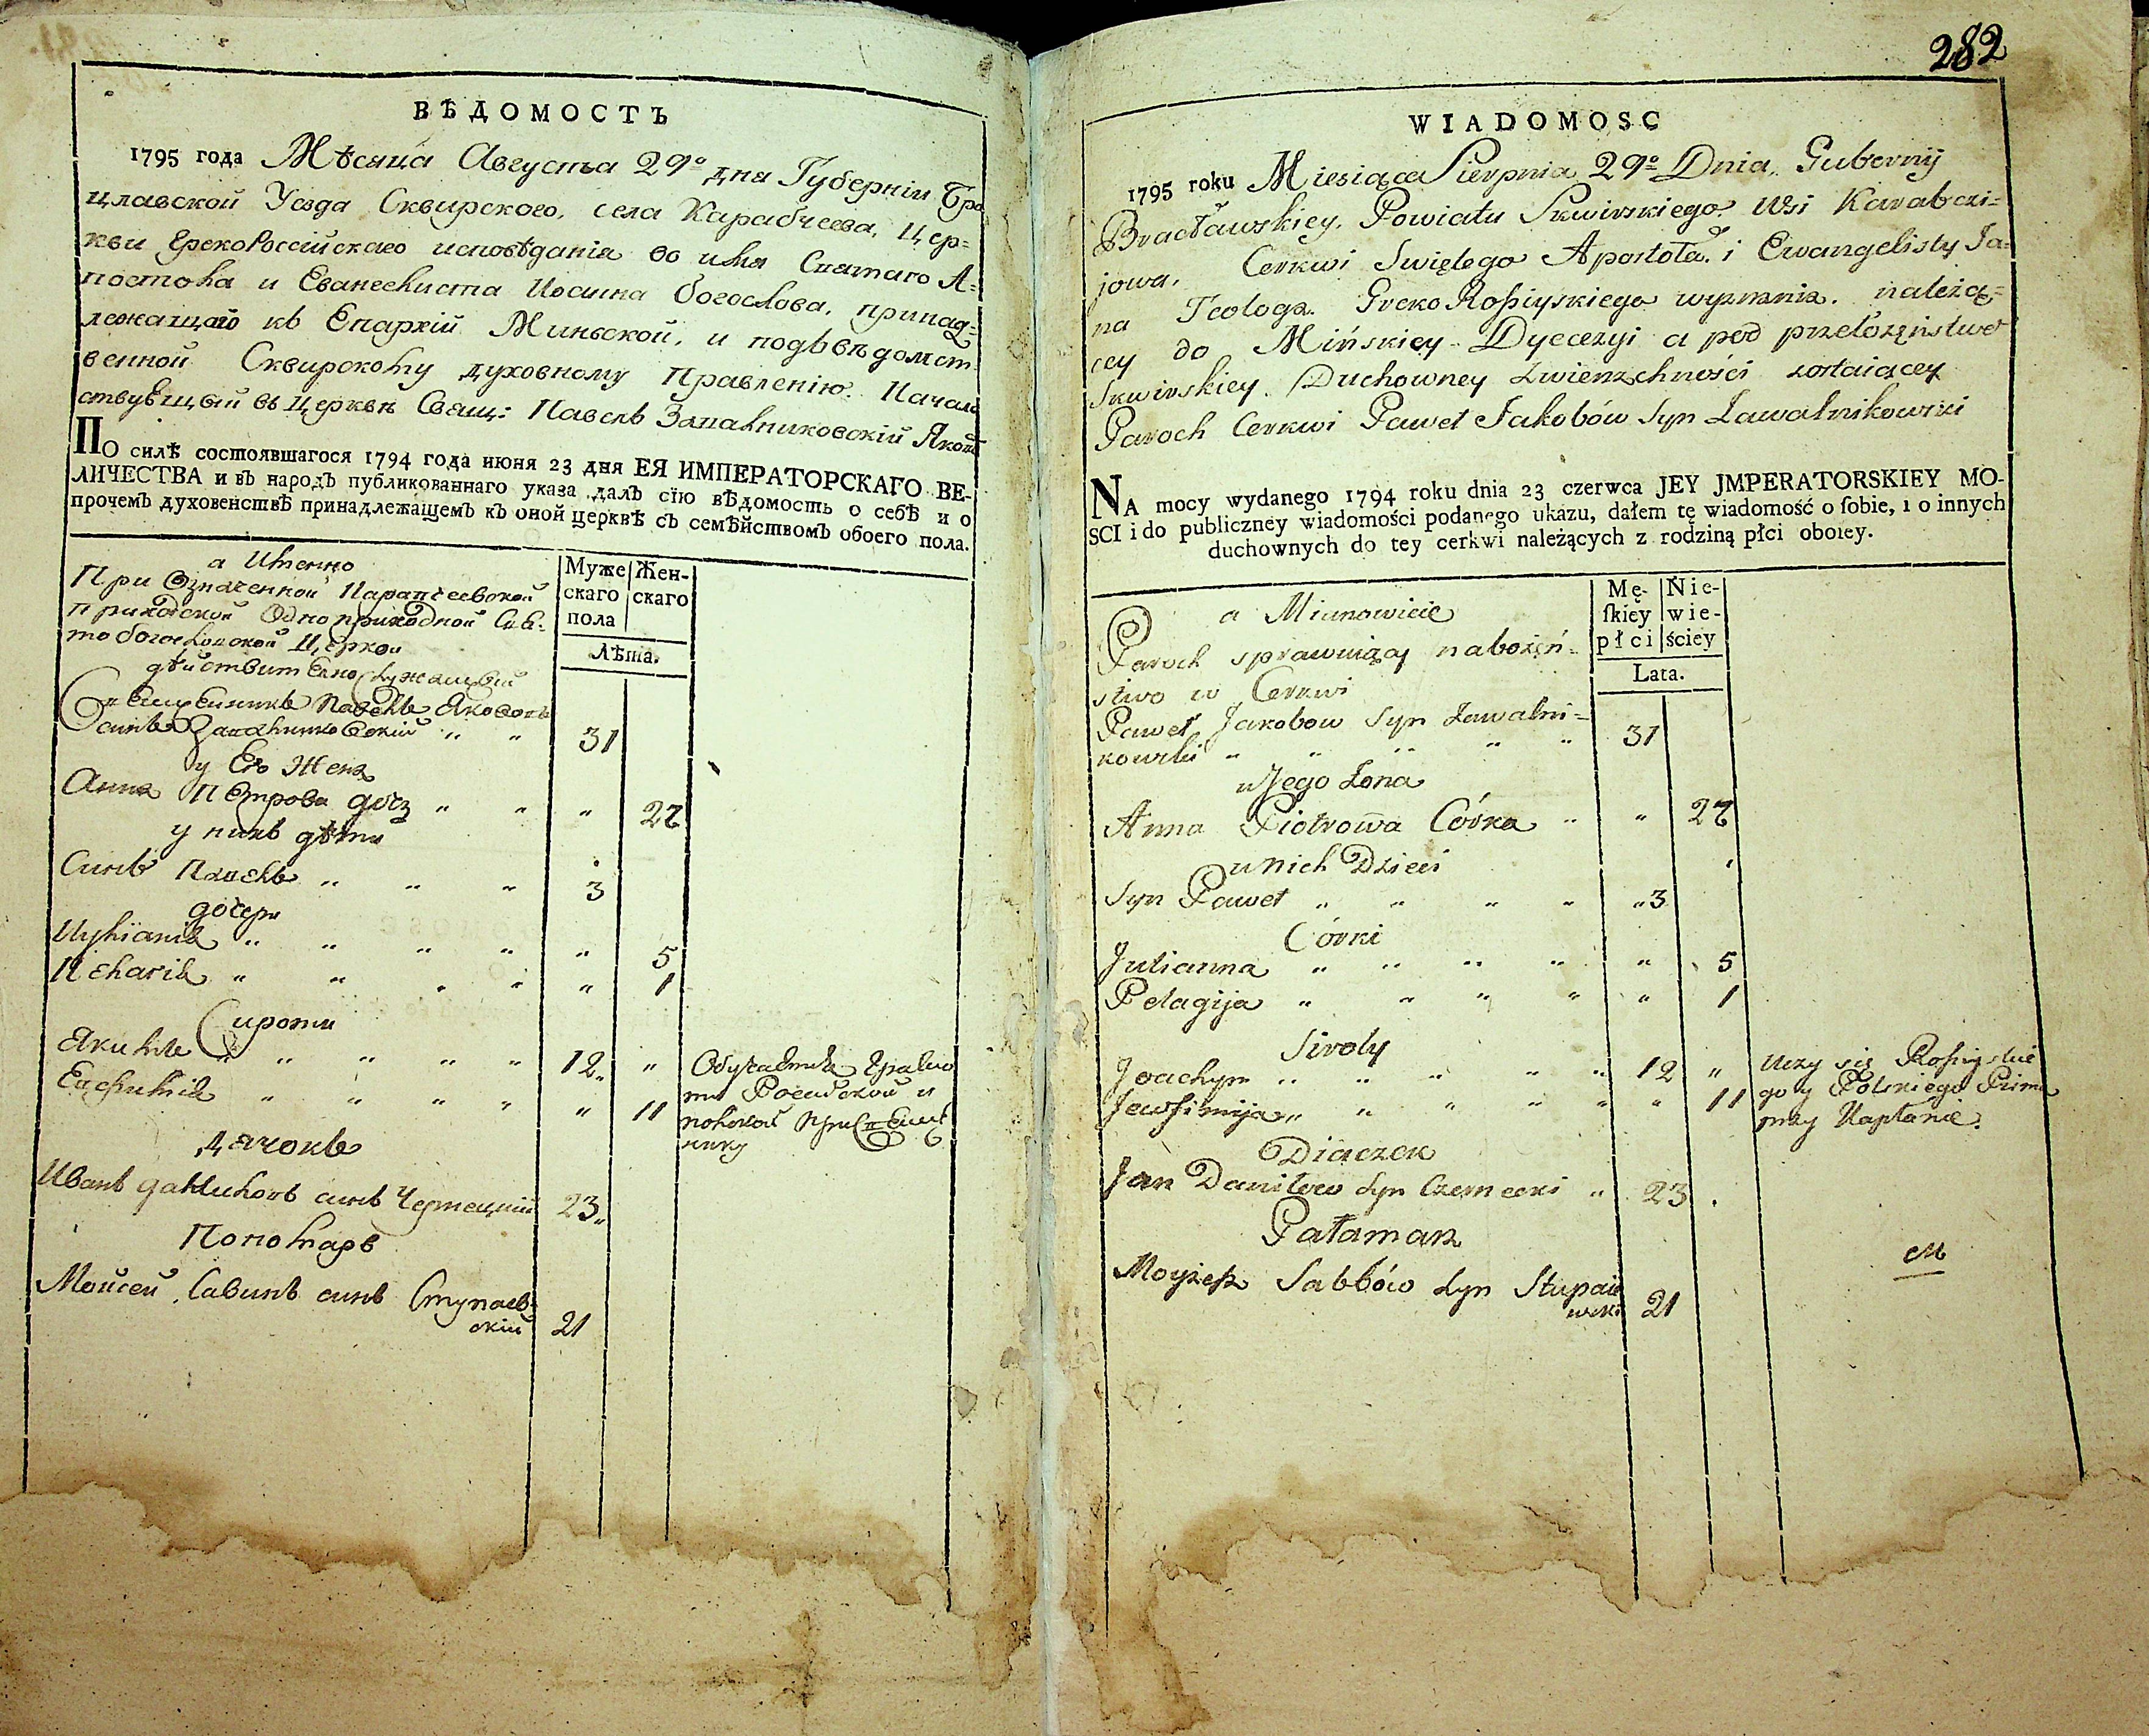 ВѢДОМОСТЬ
1795 года Мѣсяца Августа 29º дня Губерніи Бра
цлавской Уезда Сквирского, села Карабчеева, Цер=
кви ГрекоРоссійскаго исповѣданія во имя Святаго А=
постола и Евангелиста Иоанна богослова, принад=
лежащаго къ Епархій Миньской, и подъ вѣдомст
венной Сквирскому духовному Правленію. Началь
ствуЕщый въ Церквѣ Свящ: Павелъ Запальниковскій
ПО силѣ состоявшагося 1794 года июня 23 дня ЕЯ ИМПЕРАТОРСКАГО ВЕ-
ЛИЧЕСТВА и въ народъ публикованнаго указа далъ сїю вѣдомость о себѣ и о
прочемъ духовенствѣ принадлежащемъ къ оной церквѣ съ семѣйствомъ обоего пола.
а Именно
При Означенной
приходской Одноприходной Свя-
то богословской Церкви
дѣйствително Служащый
СвЕщЕнникъ Павелъ Якововъ
синъ Запалниковский " "
31
у Его Жена
Анна ПЕтрова дочь " " "
у нихъ дѣти
Синъ Павелъ " " " 3
дочери
Иулїаниа " " " " " 5
ПЕлагиа " " " " " 1
Сироти
Якимъ " " " " " 12 "
Евфимиа " " " " " 11
Обучаются Грамо
ти Росийской и
полской при СвЕщЕ
нику
Дячокъ
Иванъ даниловъ синъ Чернецкий 23 "
Пономаръ
Мойсей Савинъ синъ Ступаев-
ский 21
Муже
скаго
пола
Жен-
скаго
Лѣта.
282
WIADOMOSC
1795 roku Miesiąca Sierpnia 29º Dnia, Gubernij
Bracławskiey, Powiatu Skwirskiego Wsi Karabczi=
jowa, Cerkwi Swiętego Apostoła i Ewangelisty Ja=
na Teologa Greko Roßiyskiego wyznania. należą=
cey do Mińskiey Dyecezyi a pod przełożęństwem
Skwirskiey Duchowney Zwierzchności zostaiącey
Paroch Cerkwi Paweł Jakobów Syn Zawalnikowski
NA mocy wydanego 1794 roku dnia 23 czerwca JEY JMPERATORSKIEY MO-
SCI i do publiczney wiadomości podanego ukazu, dałem tę wiadomość o ſobie, i o innych
duchownych do tey cerkwi należących z rodziną płci oboiey.
a Mianowicie
Mę-
ſkiey
płci
Nie-
wie-
ściey
Lata.
Paroch sprawuiący nabożęń=
stwo w Cerkwi
Paweł Jakobow Syn Zawalni=
kowski " " " " " 31
u Jego Żona
Anna Piotrowa Córka " "
u Nich Dzieci
Syn Paweł " " " " " 3
Córki
Julianna " " " " " 5
Pelagija " " " " " 1
Siroty
Joachym " " " " " 12 "
Jewfimija " " " " " " 11
Uczy się Roßiyskie
go y Polskiego Pisma
przy Kapłanie.
Diaczek
Jan Daniłow Syn Czernecki " 23
Pałamarz
Moyżesz Sabbów Syn Stupaie
wski 21